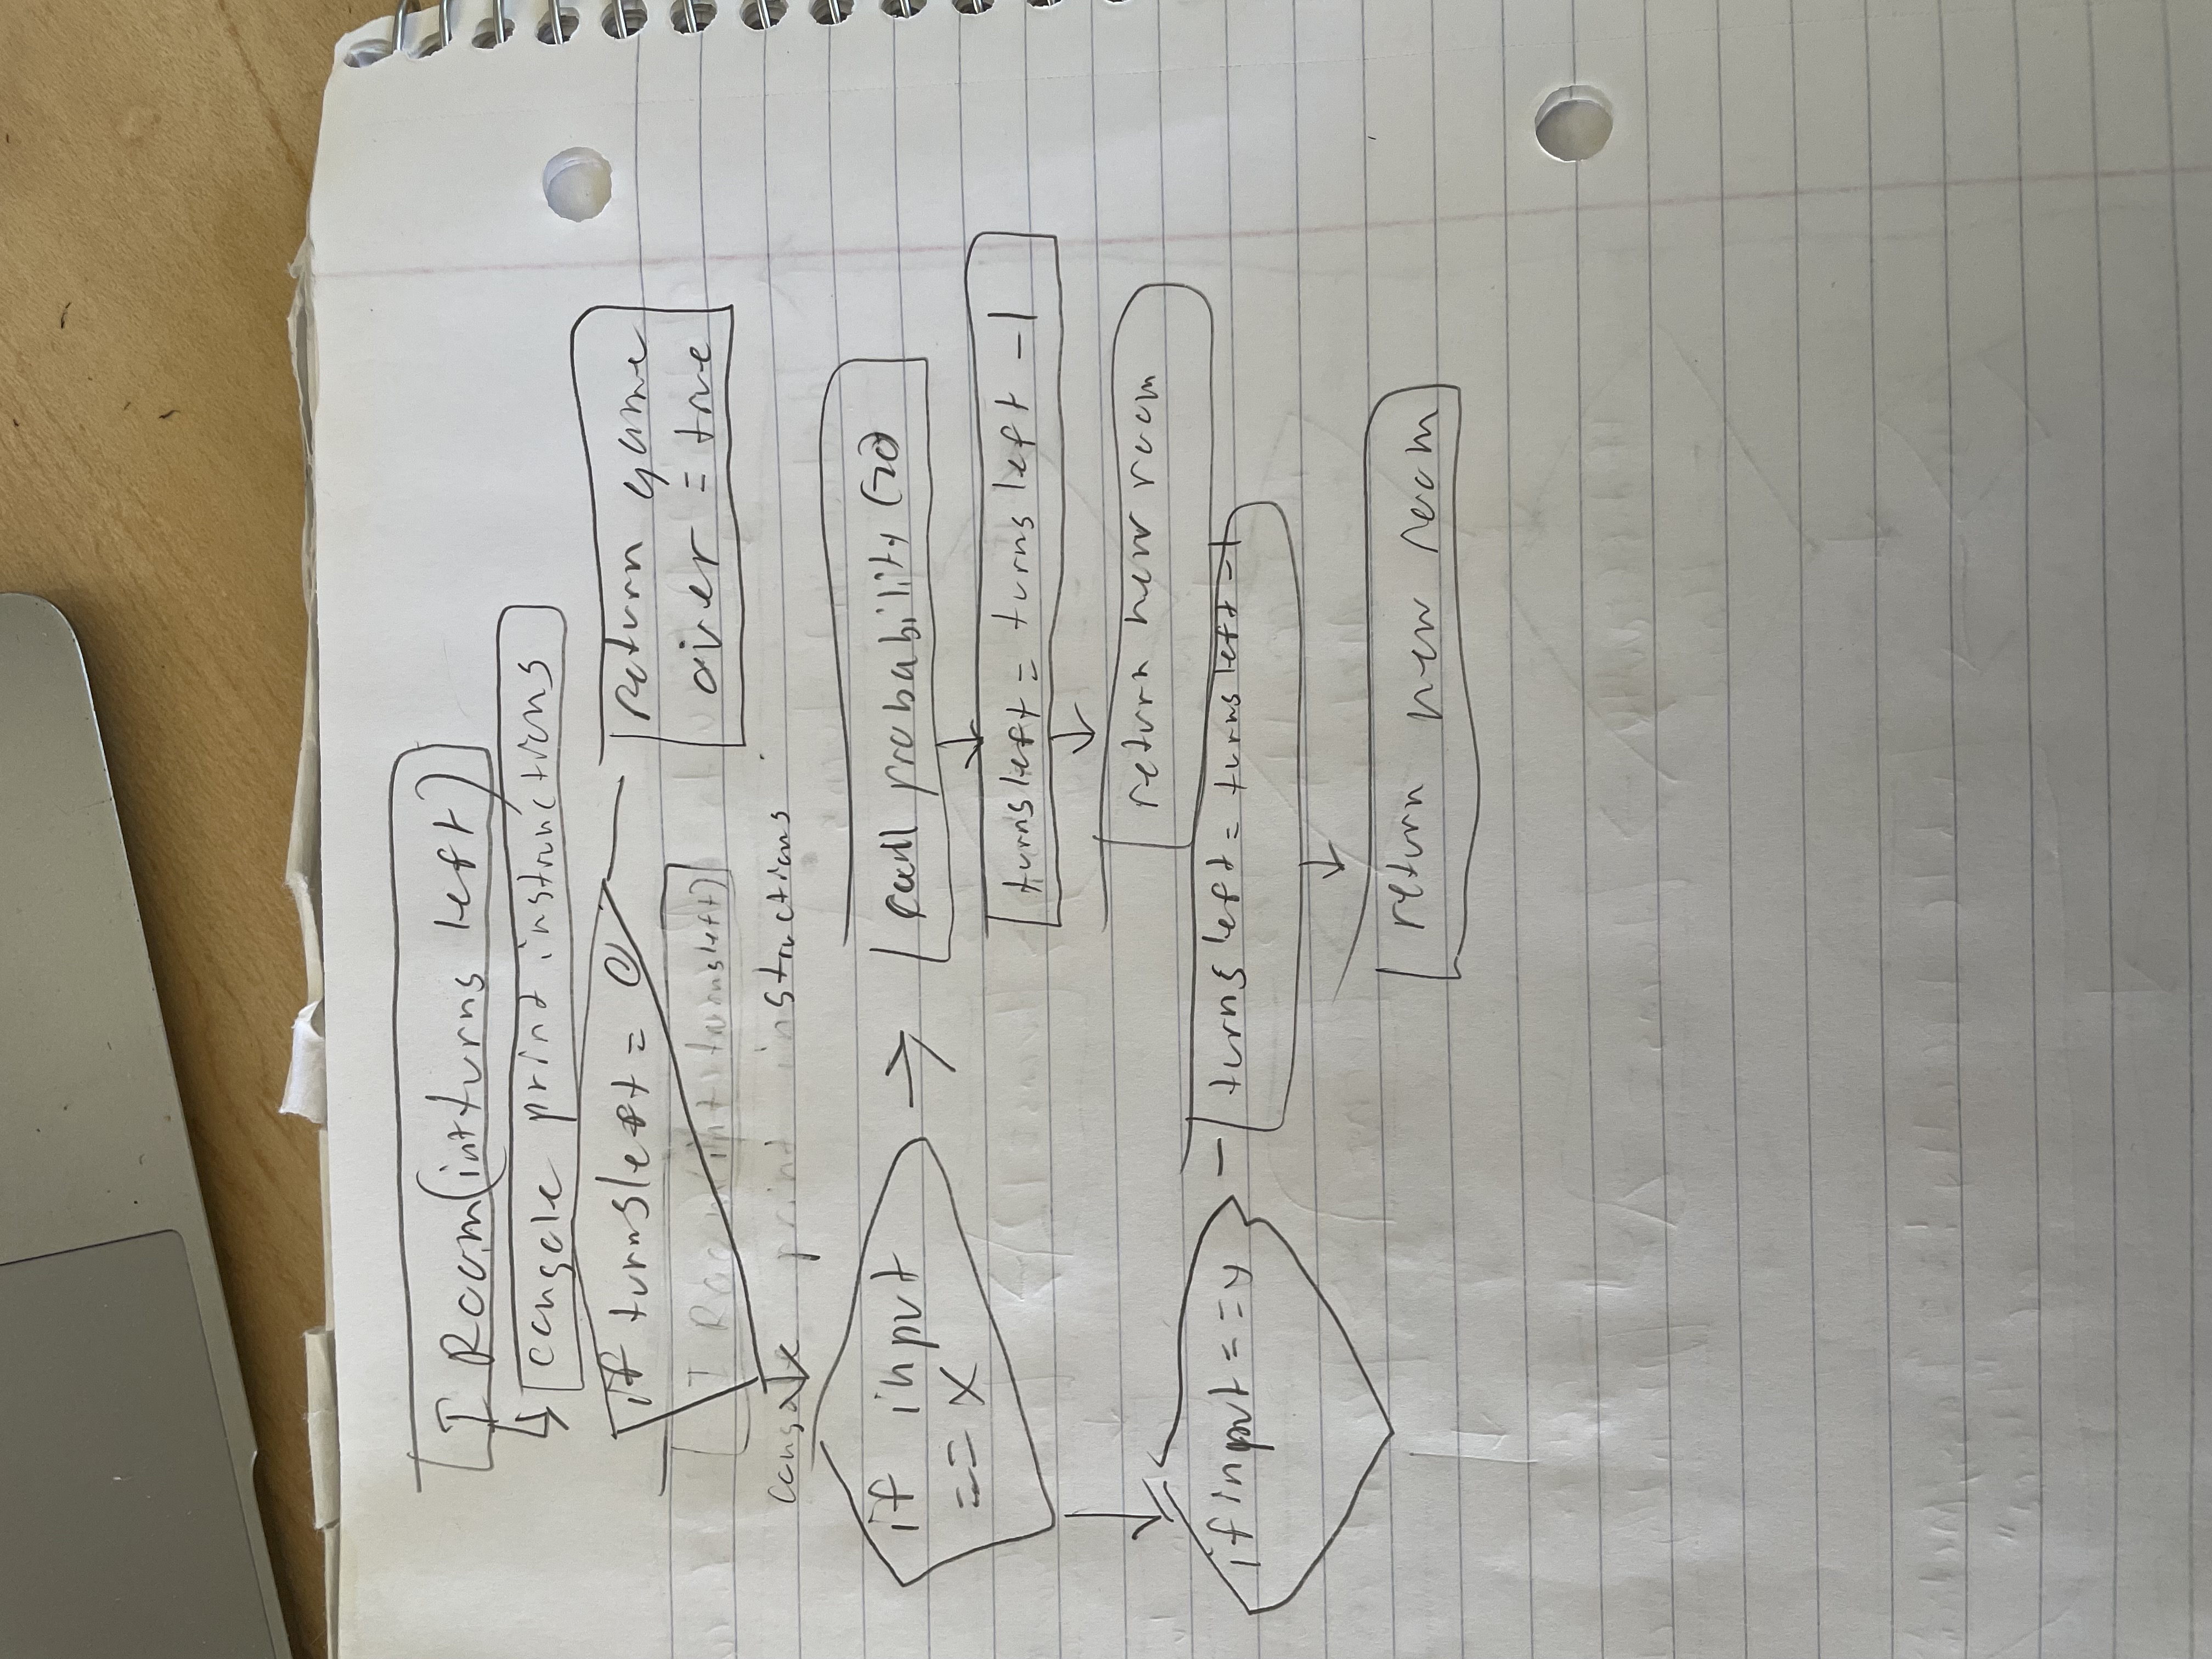 I Room(int turns left)
console print instrunctions
if turnsleft = 0
return game
over = true
I Room(int turnsleft)
console print instructions
if input
== x
call probability (70)
turnsleft = turns left -1
return new room
if input == y
turns left = turns left -1
return new room